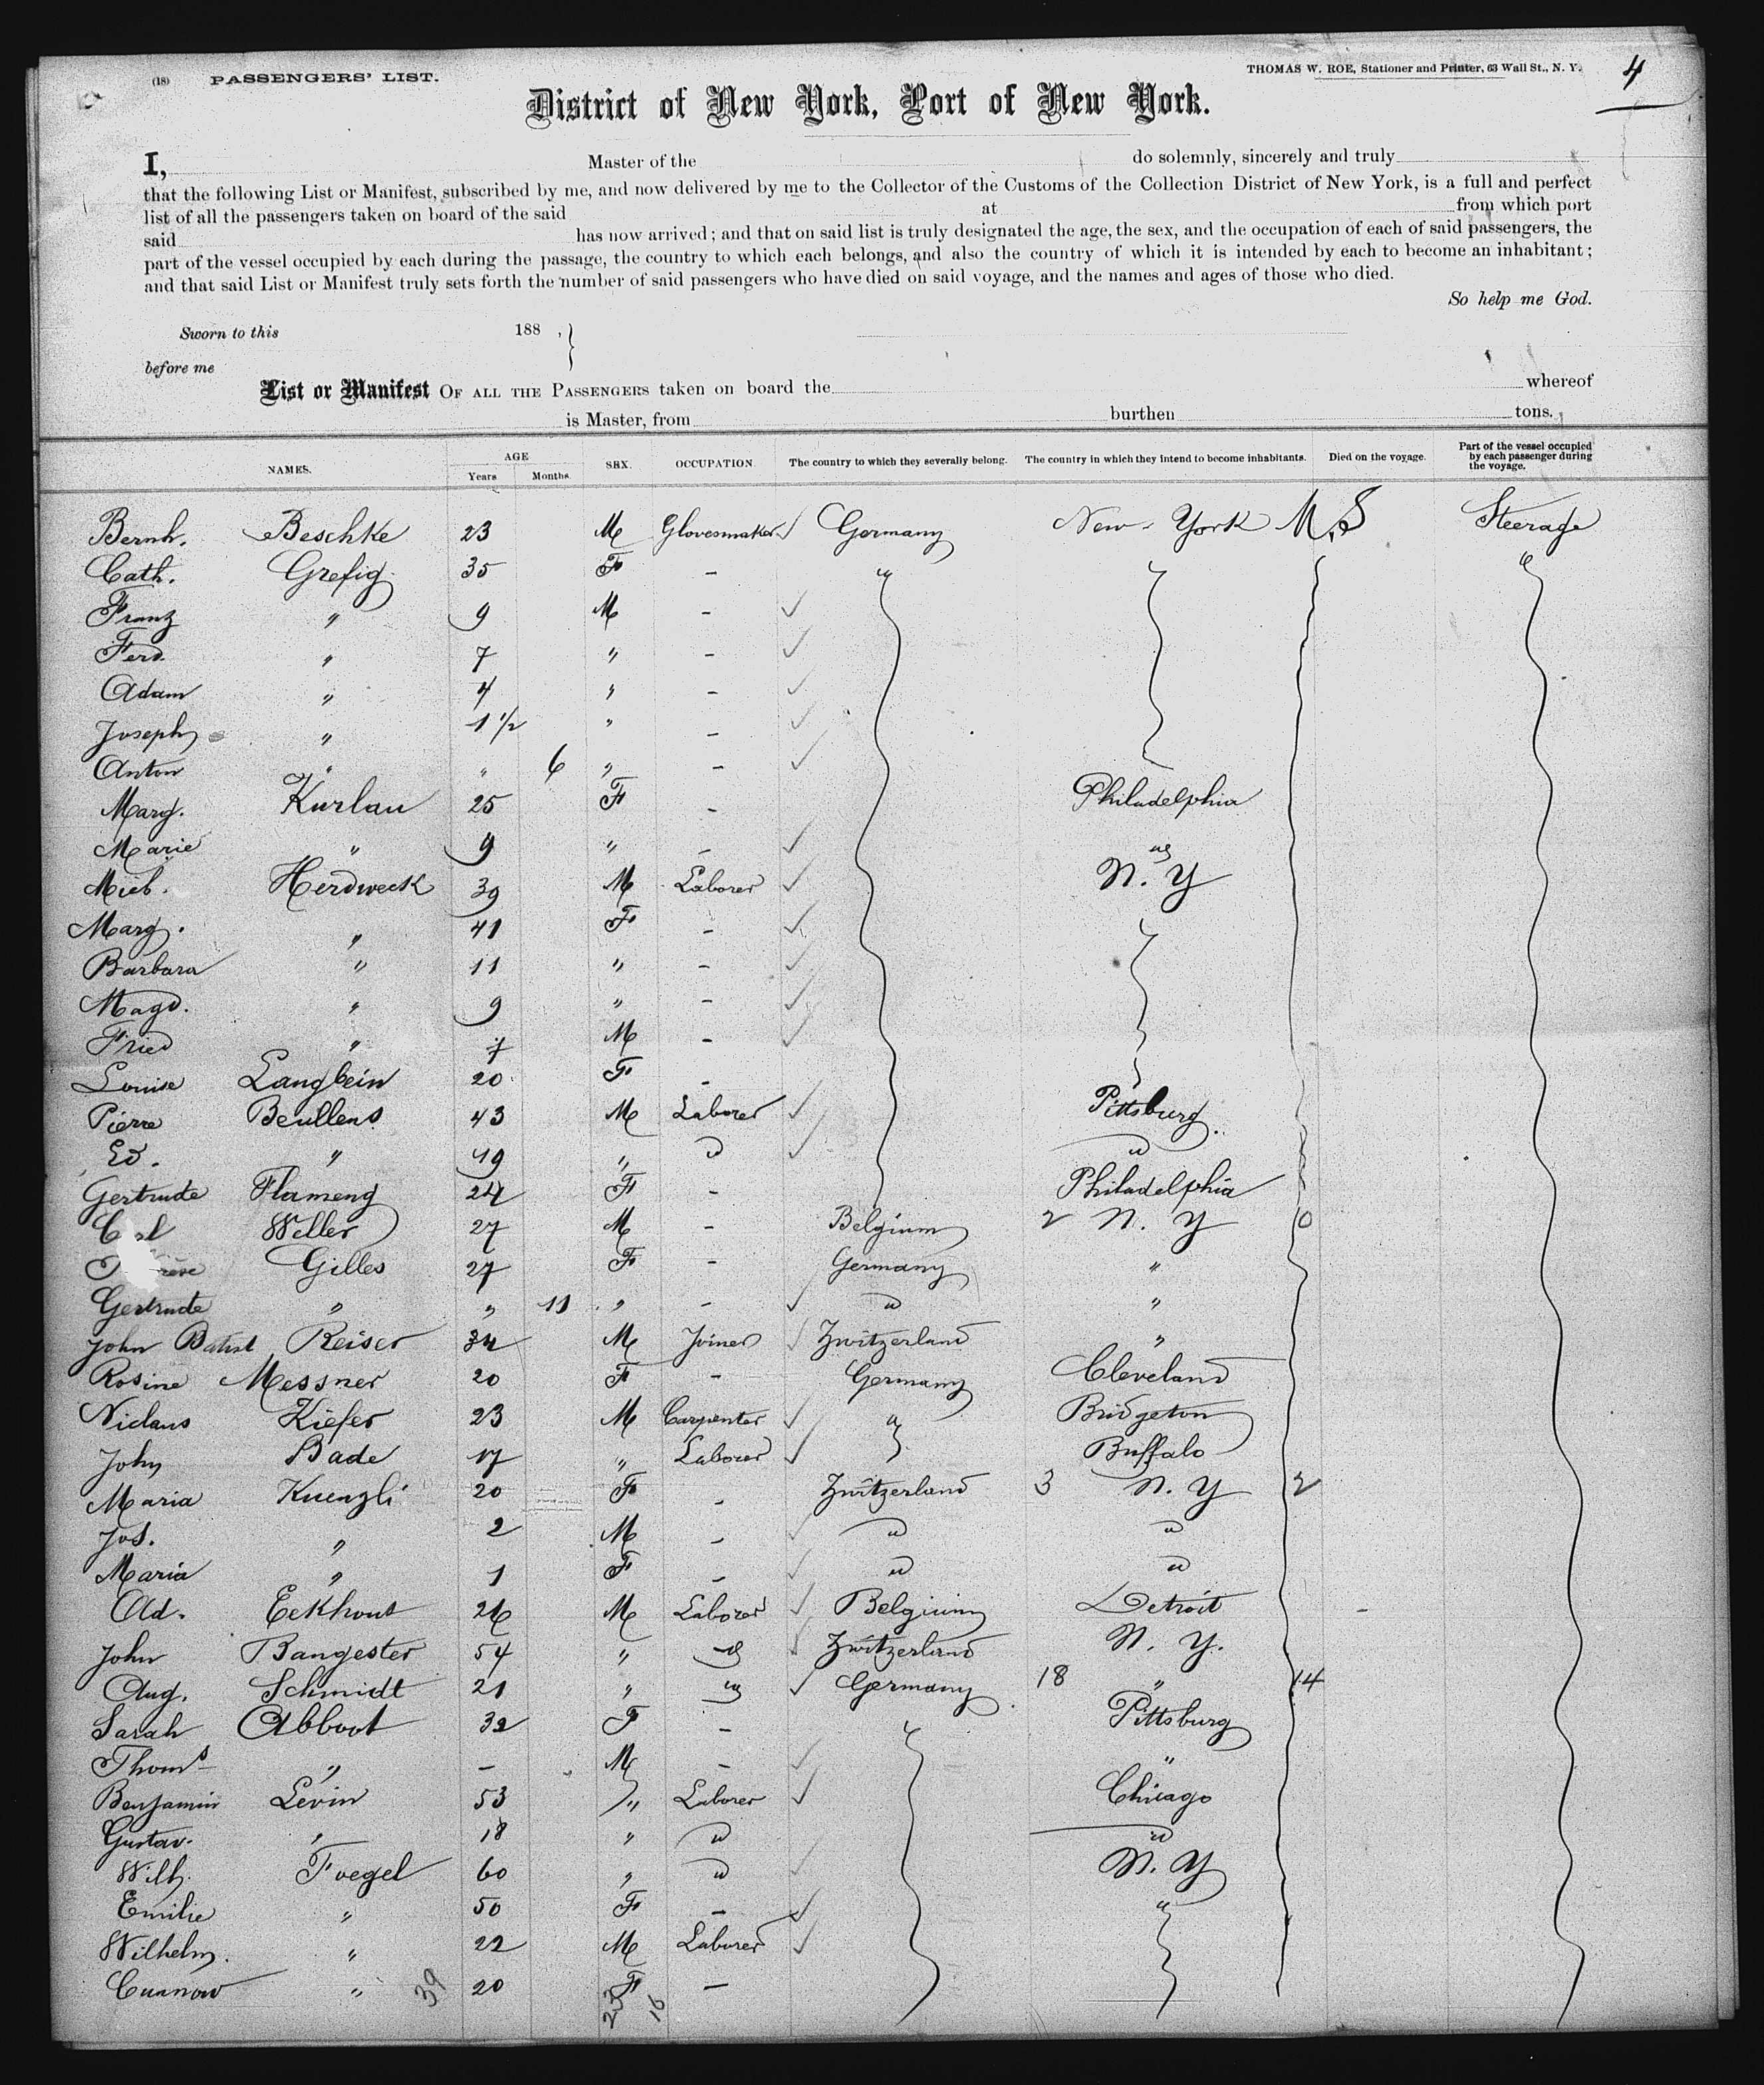 (18) PASSENGERS' LIST.
THOMAS W. ROE, Stationer and Printer, 63 Wall St., N. Y.
4
District of New York, Port of New York.
I, Master of the do solemnly, sincerely and truly
that the following List or Manifest, subscribed by me, and now delivered by me to the Collector of the Customs of the Collection District of New York, is a full and perfect
list of all the passengers taken on board of the said at from which port
said has now arrived; and that on said list is truly designated the age, the sex, and the occupation of each of said passengers, the
part of the vessel occupied by each during the passage, the country to which each belongs, and also the country of which it is intended by each to become an inhabitant;
and that said List or Manifest truly sets forth the number of said passengers who have died on said voyage, and the names and ages of those who died.
So help me God.
Sworn to this 188 ,
before me
List or Manifest OF ALL THE PASSENGERS taken on board the whereof
is Master, from burthen tons.
NAMES. AGE Years Months. SEX. OCCUPATION. The country to which they severally belong. The country in which they intend to become inhabitants. Died on the voyage. Part of the vessel occupied by each passenger during the voyage.
Bernh. Beschke 23 M Glovesmaker Germany New-York M.S Steerage
Cath. Grefig 35 F - "
Franz " 9 M -
Ferd. " 7 " -
Adam " 4 " -
Joseph " 1 1/2 " -
Anton " " 6 " -
Marg. Kurlau 25 F - Philadelphia
Marie " 9 " - "
Mich. Herdweck 39 M Laborer N. Y
Marg. " 41 F -
Barbara " 11 " -
Magd. " 9 " -
Fried " 7 M -
Louise Langbein 20 F -
Pierre Beullens 43 M Laborer Pittsburg.
Ed. " 19 " " "
Gertrude Flameng 24 F - Philadelphia
Weller 27 M - Belgium 2 N. Y 0
Gilles 27 F - Germany "
Gertrude " " 11 " - " "
John Batist Reiser 34 M Joiner Zwitzerland "
Rosine Messner 20 F - Germany Cleveland
Niclaus Kiefer 23 M Carpenter " Bridgeton
John Bade 17 " Laborer Buffalo
Maria Kuenzli 20 F - Zwitzerland 3 N. Y 2
Jos. " 2 M - " "
Maria " 1 F - " "
Ad. Eekhout 26 M Laborer Belgium Detroit -
John Bangester 54 " " Zwitzerland N. Y.
Aug. Schmidt 21 " " Germany 18 " 14
Sarah Abboot 32 F - Pittsburg
Thoms " - M - "
Benjamin Levin 53 " Laborer Chicago
Gustav. " 18 " " "
Wilh. Foegel 60 " " N. Y
Emilie " 50 F - "
Wilhelm. " 22 M Laborer
" 20 F -
39 23 16